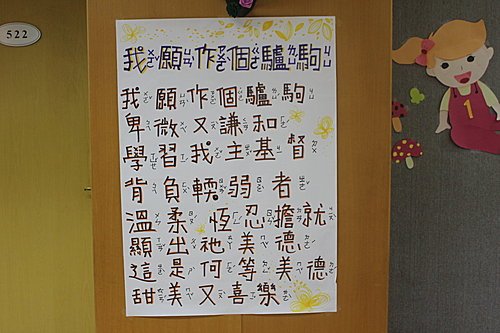 522
我願作個驢駒
我願作個驢駒
卑微又謙和
學習我主基督
背負輭弱者
溫柔恆忍擔就
顯出祂美德
這是何等美德
甜美又喜樂
1